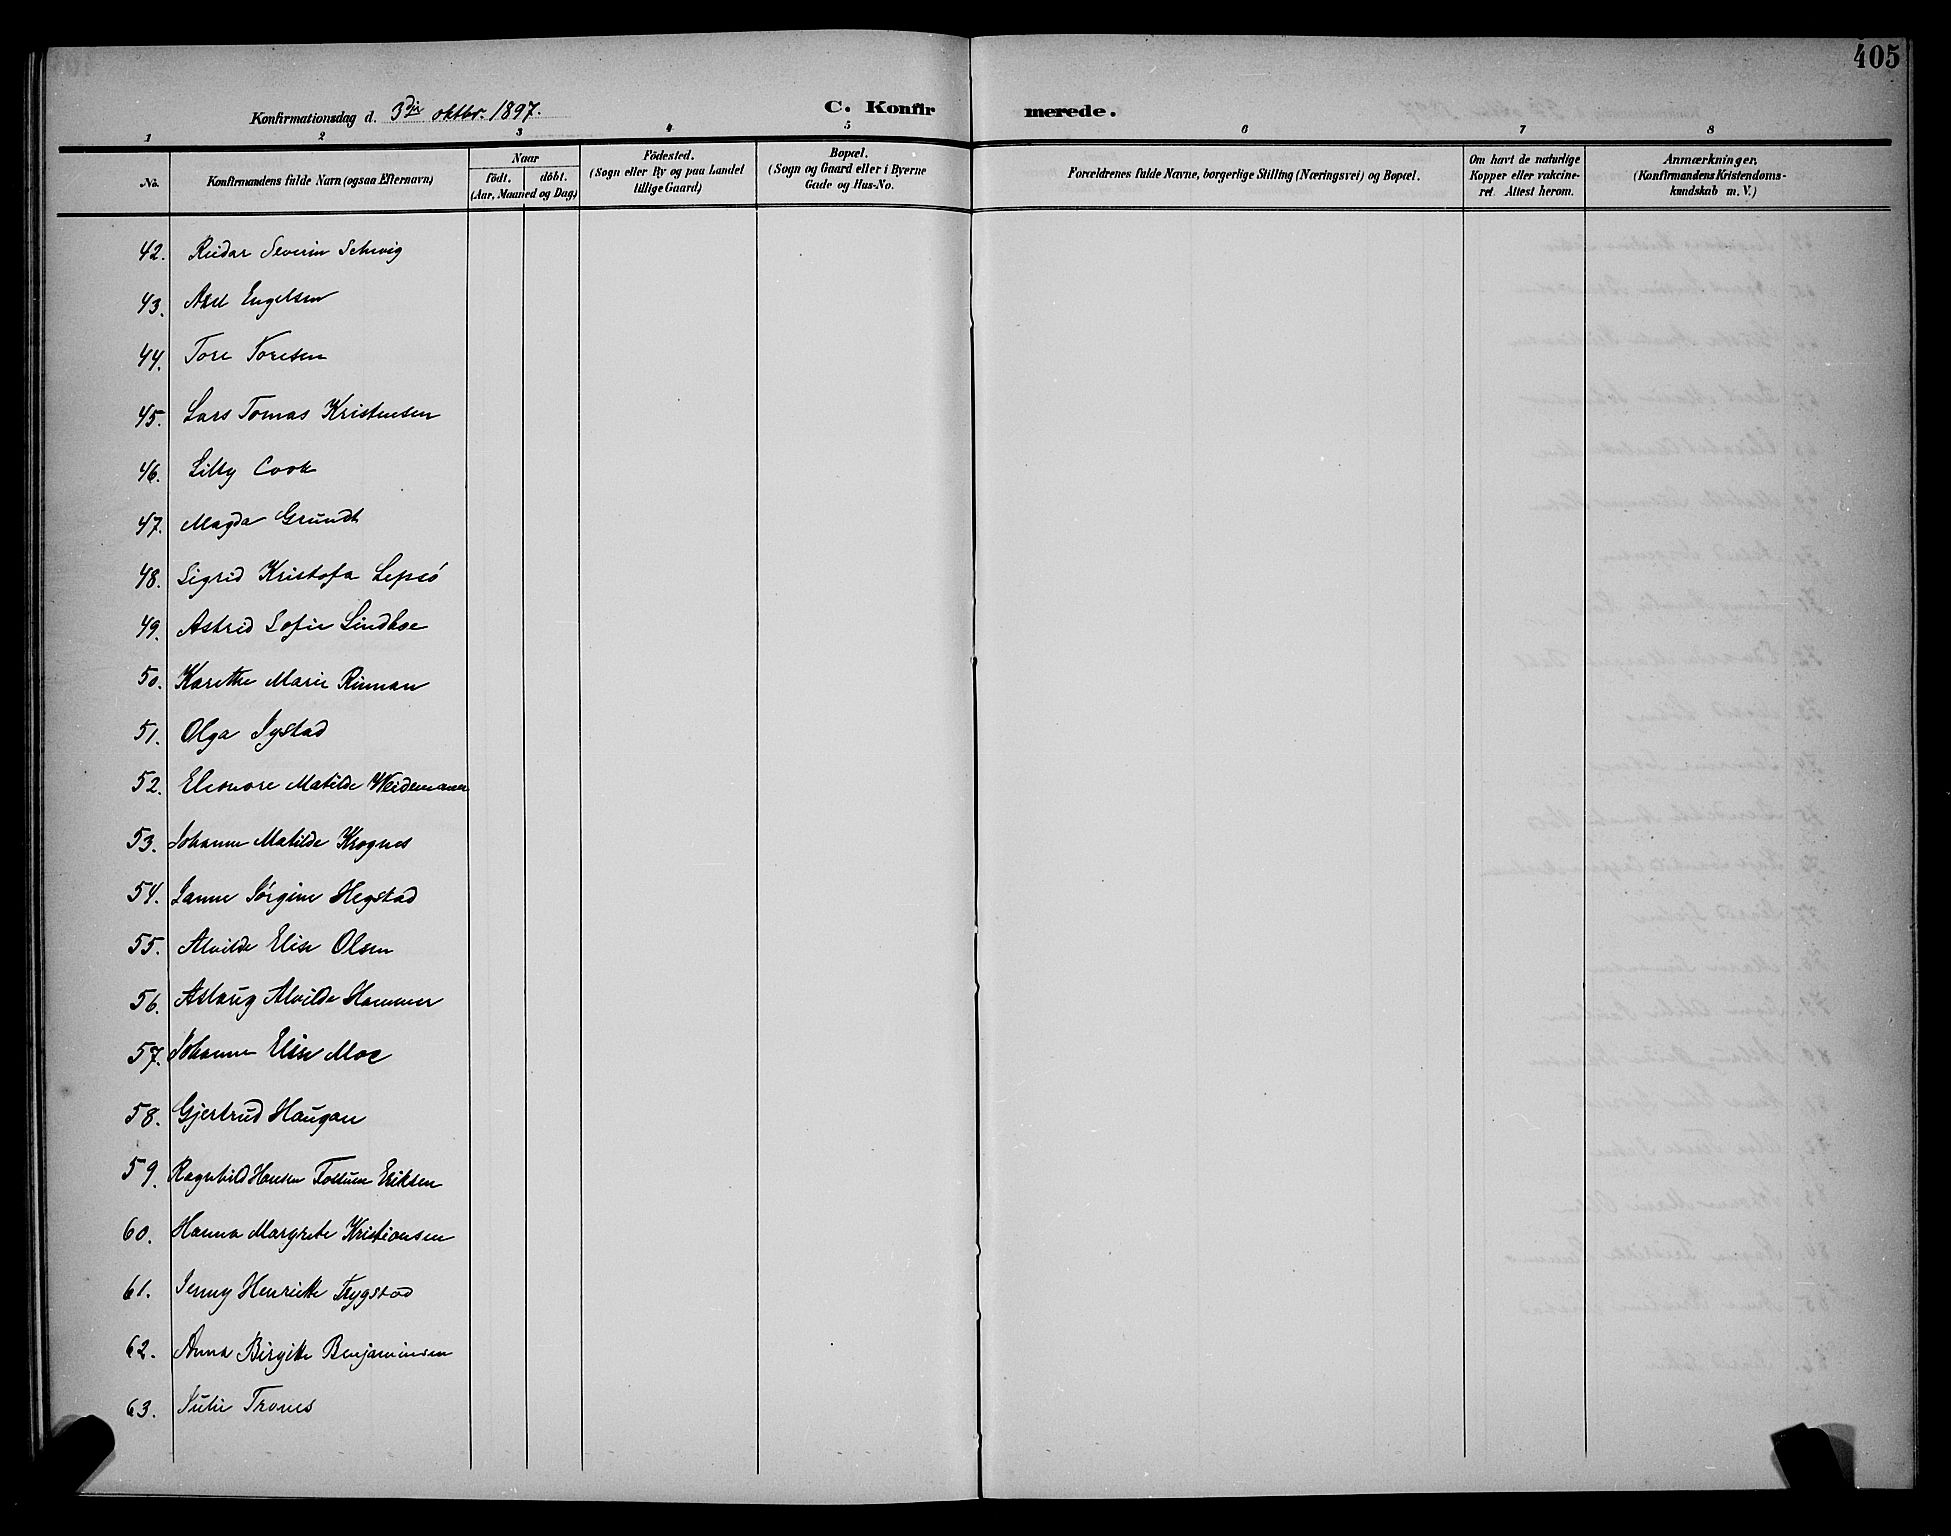 405
Konfirmationsdag d. 3die oktbr. 1897.
C. Konfirmerede.
1 2 3 4 5 6 7 8
No.
Konfirmandens fulde Navn (ogsaa Efternavn)
Naar
födt. döbt.
(Aar, Maaned og Dag)
Födested.
(Sogn eller By og paa Landet
tillige Gaard)
Bopæl.
(Sogn og Gaard eller i Byerne
Gade og Hus-No.
Forældrenes fulde Navne, borgerlige Stilling (Næringsvei) og Bopæl.
Om havt de naturlige
Kopper eller vakcine-
ret. Attest herom.
Anmærkninger.
(Konfirmandens Kristendoms-
kundskab m. V.)
42. Reidar Severin Schevig
43. Axel Engelsen
44. Tore Toresen
45. Lars Tomas Kristensen
46. Lilly Cook
47. Magda Grundt
48. Sigrid Kristofa Lepsö
49. Astrid Sofie Lindboe
50. Karethe Marie Rinnan
51. Olga Systad
52. Eleonore Matilde Weidemann
53. Johanne Matilde Krognes
54. Janne Jørgine Hegstad
55. Alvilde Elise Olsen
56. Aslaug Alvilde Hammer
57. Johanne Elise Moe
58. Gjertrud Haugan
59. Ragnhild Hansen Fossum Eriksen
60. Hanna Margrete Kristiansen
61. Jenny Henriette Trygstad
62. Anna Birgitte Benjaminsen
63. Julie Trones